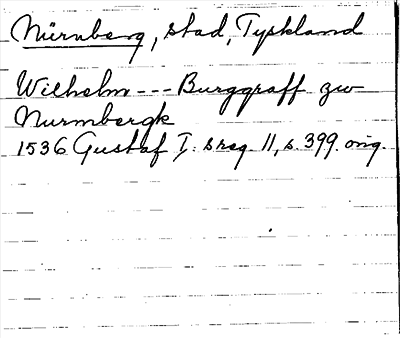 Nürnberg, stad, Tyskland
Wilhelm --- Burggraff zw
Nurmbergk
1536 Gustaf I: s reg. 11, s. 399. orig.